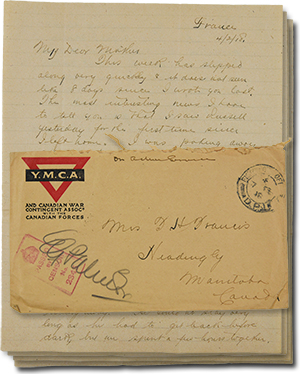 France
4/2/18.
My Dear Mother
This week has slipped
along very quickly & it does not seem
like 8 days since I wrote you last.
The most interesting news I have
to tell you is that I saw Russell
yesterday for the first time since
I left home. I was working away
On Active Service
Y.M.C.A.
AND CANADIAN WAR
CONTINGENT ASSOCN
WITH THE
CANADIAN FORCES
Mrs T H Francis
Headingly
Manitoba
Canada
long as he had to get back before
dark, but we spent a few hours together.